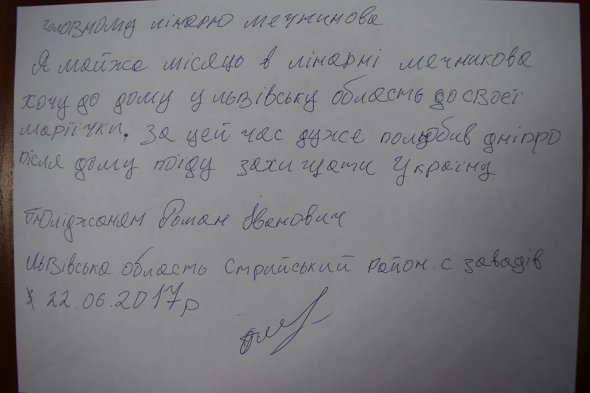 головному лікарю мечникова
Я майжа місяць в лікарні мечникова
хочу до дому у львівську область до своєї
марїїчки. За цей час дуже полюбив дніпро
після дому поїду захищати Україну
Роман Іванович
Львівська область Стрийський район. с. завадів
22.06.2017р